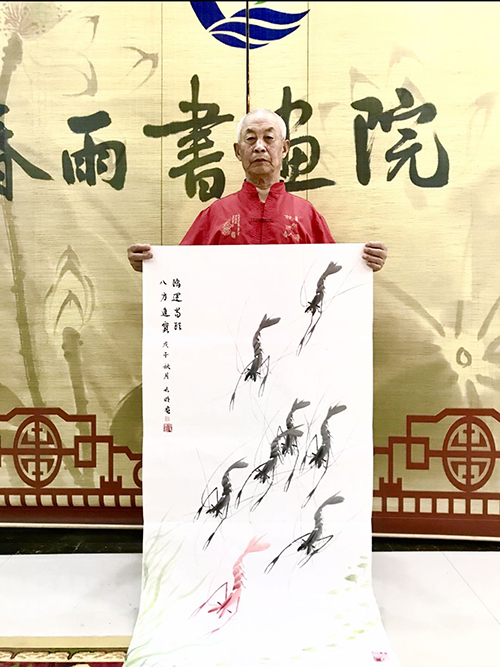 春雨書画院
鴻運當頭
八方進寶 戊子秋月